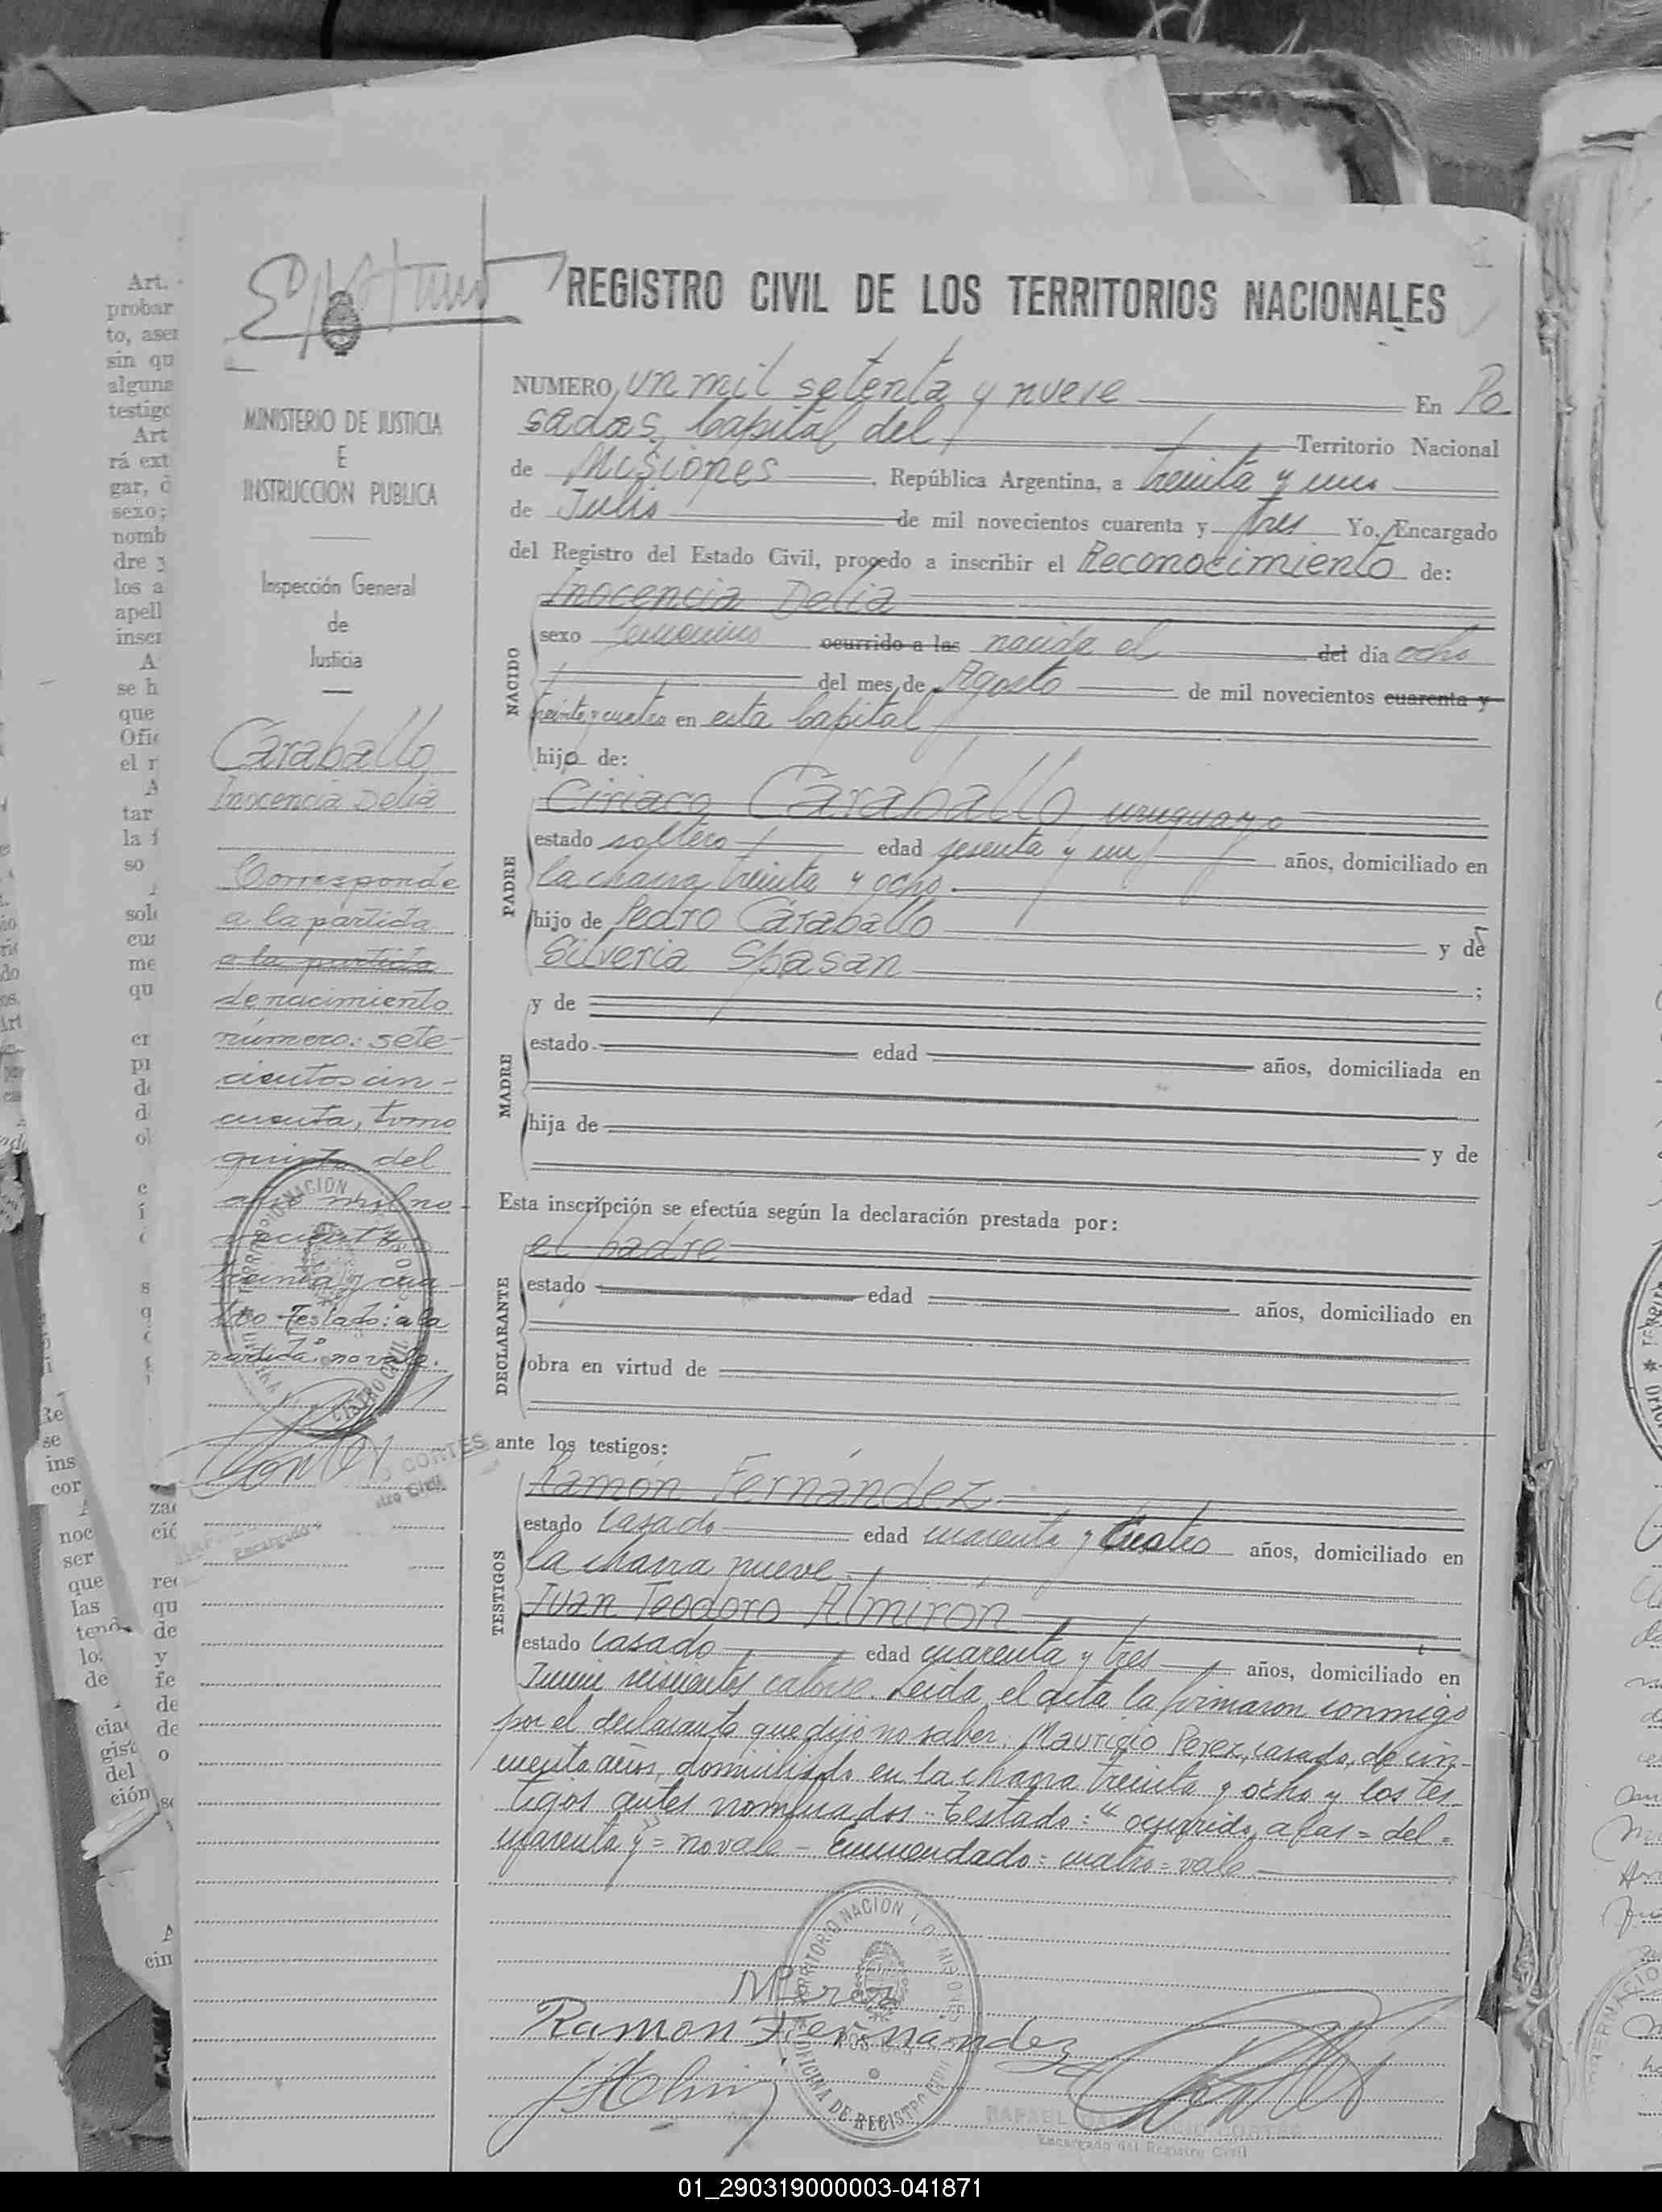 REGISTRO CIVIL DE LOS TERRITORIOS NACIONALES
MINISTERIO DE JUSTICIA
E
INSTRUCCION PUBLICA
Inspección General
de
Justicia
Caraballo
Inocencia Delia
Corresponde
a la partida
a la partida
de nacimiento
número: sete-
cientos cin-
cuenta, tomo
quinto del
año mil no-
vecientos
treinta y cua-
tro. Testado: a la
partida: no vale.
NUMERO un mil setenta y nueve En Po
sadas, Capital del Territorio Nacional
de Misiones, República Argentina, a treinta y uno
de Julio de mil novecientos cuarenta y tres Yo, Encargado
del Registro del Estado Civil, procedo a inscribir el Reconocimiento de:
NACIDO
Inocencia Delia
sexo femenino ocurrido a las nacida el del día ocho
del mes de Agosto de mil novecientos cuarenta y
treinta y cuatro en esta Capital
hija de:
PADRE
Ciriaco Caraballo, uruguayo
estado soltero edad sesenta y un años, domiciliado en
la chacra treinta y ocho.
hijo de Pedro Caraballo y de
Silveria ;
MADRE
y de
estado edad años, domiciliada en
hija de y de
Esta inscripción se efectúa según la declaración prestada por:
DECLARANTE
el padre
estado edad años, domiciliado en
obra en virtud de
ante los testigos:
TESTIGOS
Ramón Fernández
estado casado edad cuarenta y cuatro años, domiciliado en
la chacra nueve
Juan Teodoro Almirón
estado casado edad cuarenta y tres años, domiciliado en
Junin seiscientos catorce. Leida el acta la firmaron conmigo
por el declarante que dijo no saber: Mauricio Perez, casado, de cin-
cuenta años, domiciliado en la chacra treinta y ocho y los tes-
tigos antes nombrados.- Testado: "ocurrido a las = del =
cuarenta y" = no vale - Enmendado = cuatro = vale
M Perez
Ramon Fernandez
TERRITORIO NACIONAL DE MISIONES
POSADAS
OFICINA DE REGISTRO CIVIL
Encargado del Registro Civil
01_290319000003-041871